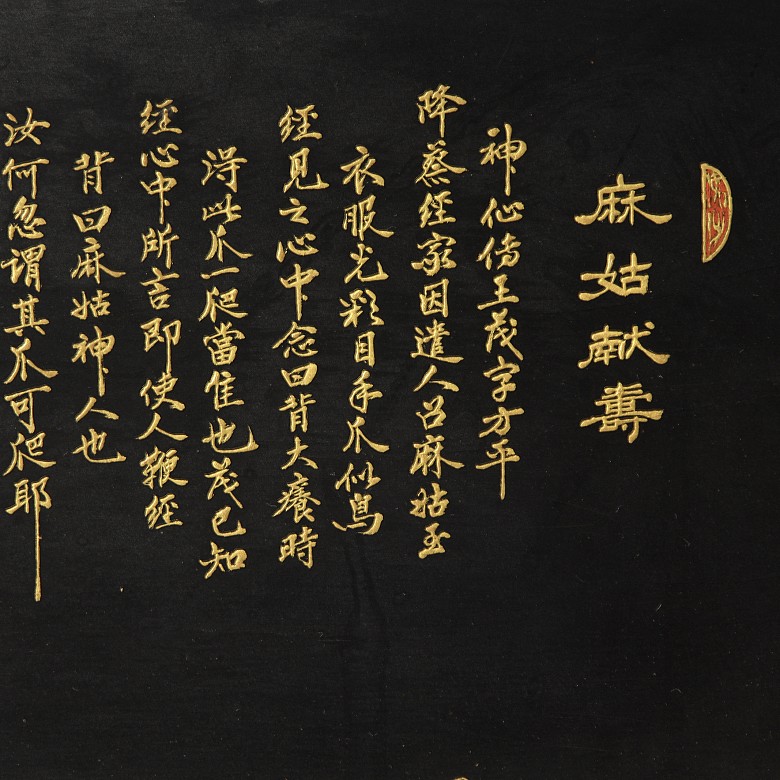 麻姑献壽
神仙傳王茂字方平
降蔡经家因遣人召麻姑至
衣服光彩目手爪似鳥
经見之心中念曰背大癢時
得此爪一爬當佳也茂已知
经心中所言即使人鞭经
背曰麻姑神人也
汝何忽謂其爪可爬耶